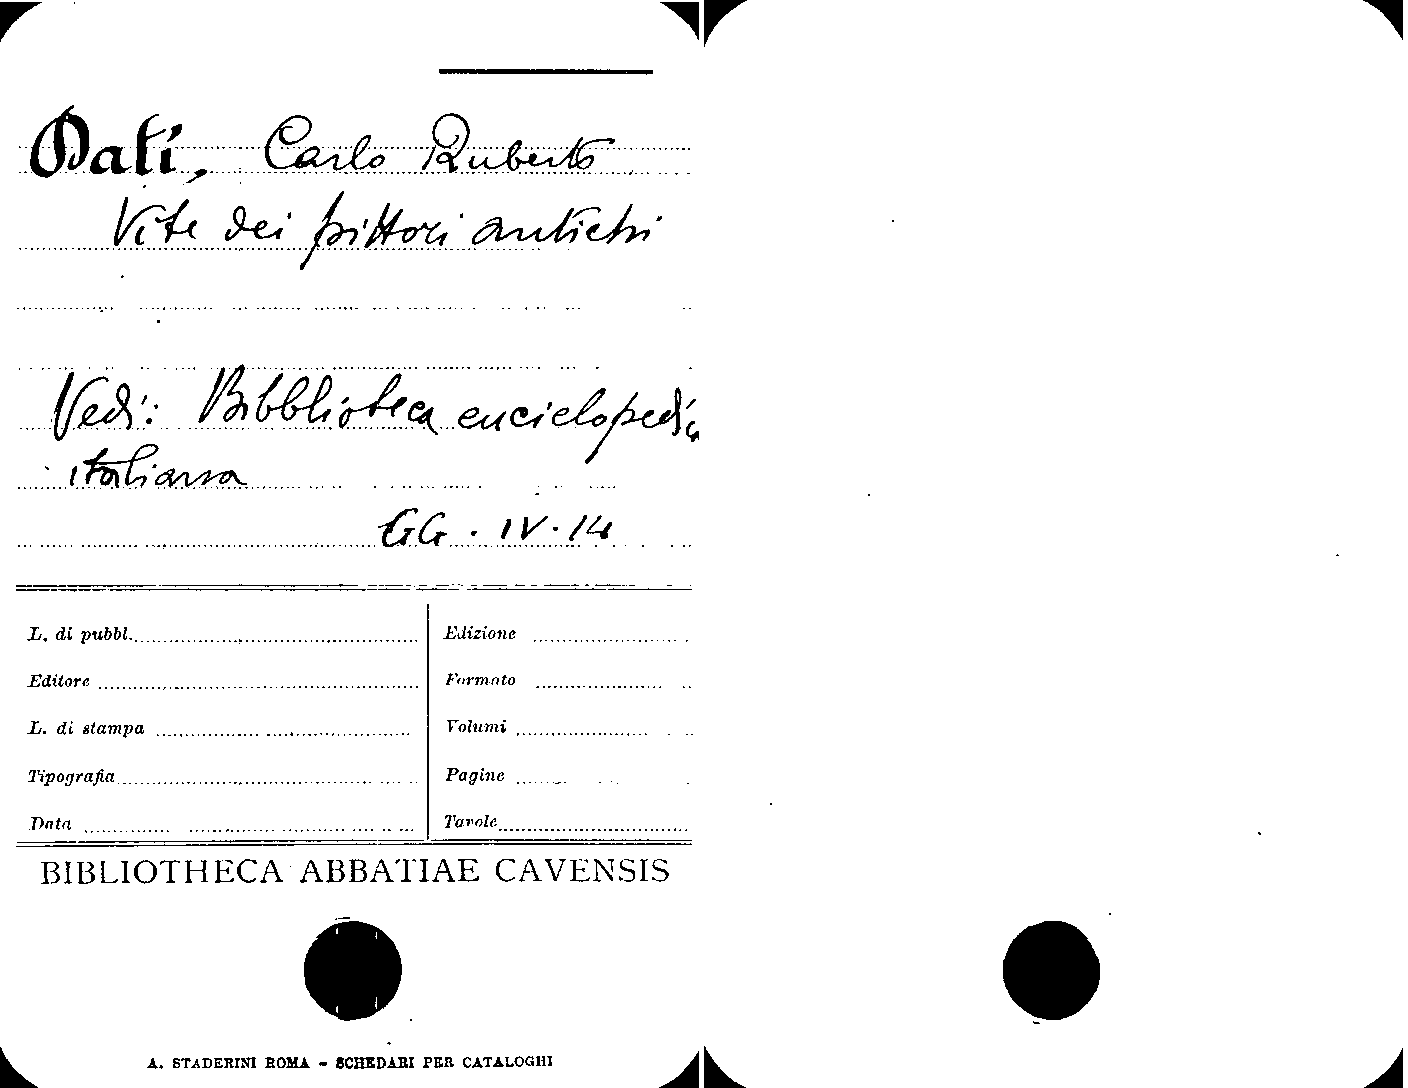 Dati, Carlo Ruberto
Vite dei pittori antichi
Vedi: Bibblioteca enciclopedica
italiana
GG. IV. 14
L. di pubbl.
Edizione
Editore
Formato
L. di stampa
Volumi
Tipografia
Pagine
Data
Tavole
BIBLIOTHECA ABBATIAE CAVENSIS
A. STADERINI ROMA - SCHEDARI PER CATALOGHI